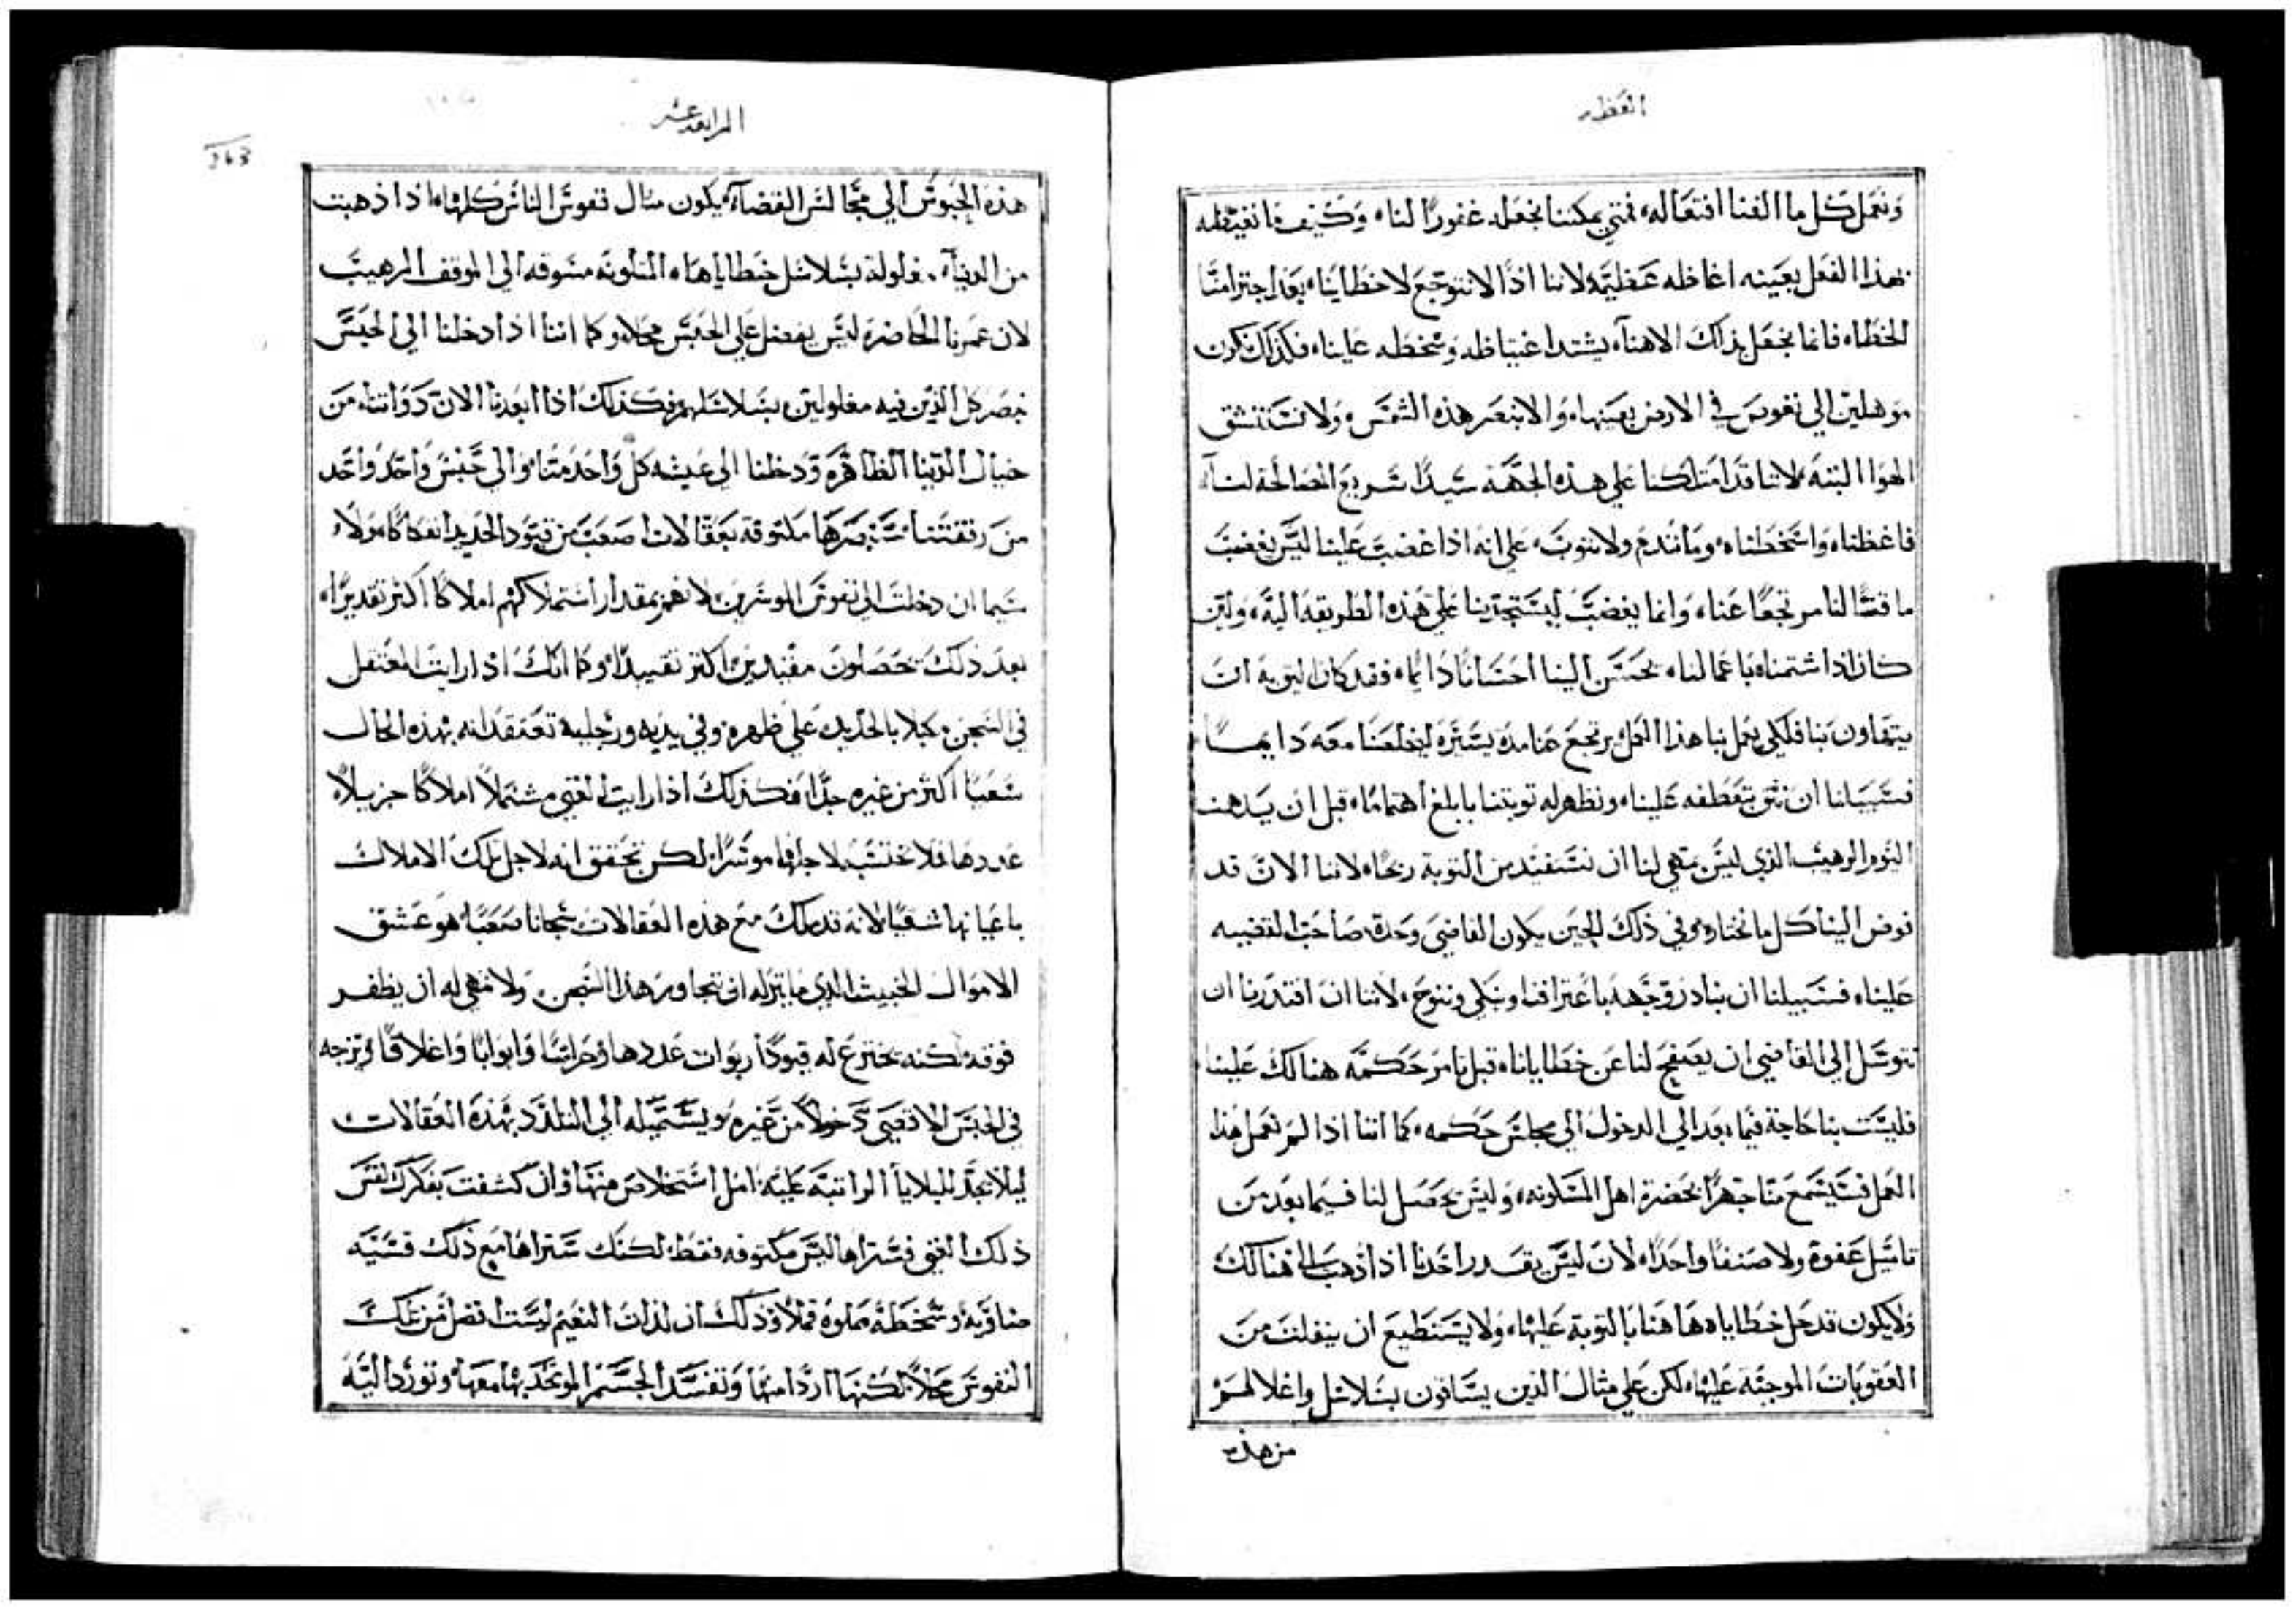 العظه
ونعمل كل ما الفنا افتعاله، فمتى يمكننا نجعله غفورًا لنا، وكيف ما نغيظه
بهذا الفعل بعينه اغاظه عظيمة لاننا اذًا لا نتوجع لاخطاينا، بعد اجترامنا
الخطا، فانما نجعل بذلك الاهنا، يشتد اغتياظه وسخطه علينا، فكذلك نكون
موهلين الي نغوص في الارض بعينها، والا نبصر هذه الشمس، ولا نستنشق
الهوا البته، لاننا قد امتلكنا علي هذه الجهه سيدًا سريع المصالحة لنا
فاغظناه واسخطناه، وما نندم ولا نتوب، علي انه اذا غضب علينا ليس يغضب
ماقتًا لنا مرتجعًا عنا، وانما يغضب ليستجدبنا علي هذه الطريقه اليه، ولين
كان اذا شتمناه باعمالنا، يحسن الينا احسانًا دايمًا، فقد كان ليق به ان
يتهاون بنا فلكي يعمل بنا هذا العمل يرتجع عنا مدة يسيرة ليجعلنا معه دايمًا
فسبيلنا ان نثق بتعطفه علينا، ونظهر له توبتنا بابلغ اهتمامًا، قبل ان يدهمنا
اليوم الرهيب الذي ليس يتهي لنا ان نستفيد من التوبة ربحًا، لاننا الان قد
فوض الينا كل ما نختاره، وفي ذلك الحين يكون القاضي وحده صاحب القضيه
علينا، فسبيلنا ان نبادر وجهه باعتراف، ونبكي وننوح، لاننا ان اقتدرنا ان
نتوسل الي القاضي ان يصفح لنا عن خطايانا، قبل تامر حكمه هنالك علينا
فليست بنا حاجة فيما بعد الي الدخول الي مجلس حكمه، كما اننا اذا لم نعمل هذا
العمل فسيسمع منا جهرًا بحضرة اهل المسكونه، وليس يحصل لنا فيما بعد من
تاميل عفوه ولا صنفًا واحدًا، لان ليس يقدر احدنا اذا ذهب الي هنالك
ولا يكون قد حل خطاياه هاهنا بالتوبة عليها، ولا يستطيع ان ينفلت من
العقوبات الموجبه عليها، لكن علي مثال الذين يساقون بسلاسل واغلالهم
من هذه
الرابعه عشر
263
هذه الحبوس الي مجالس القضاة، يكون مثال نفوس الناس كلها، اذا ذهبت
من الدنيا، مغلولة بسلاسل خطاياها، المتلونه مسوقه الي الموقف الرهيب
لان عمرنا الحاضر ليس يفضل علي الحبس محلا، وكما اننا اذا دخلنا الي الحبس
نبصر كل الذين فيه مغلولين، بسلاسلهم، فكذلك اذا ابعدنا الان ذواتنا، من
خيال الدنيا الظاهرة ودخلنا الي عيشه كل واحد منا، والي حبس واحد واحد
من رفقتنا، سنبصرها ملتوقة بعقالات اصعب من قيود الحديد انفكاكًا، ولا
سيما ان دخلت الي نفوس الموسرين، لانهم بمقدار استملاكهم املاكًا اكثر تقديرًا،
بعد ذلك يحصلون مقيدين، اكثر تقييدًا، وكما انك اذا رايت المعتقل
في السجن، مكبلا بالحديد، علي ظهره، وفي يديه، ورجليه، تعتقد انه بهذه الحال
شعبًا اكثر من غيره جدًا، فكذلك اذا رايت الغني مشتملاً املاكًا جزيلاً،
عددها، فلا تحتسبه لاجلها موسرًا، لكن تحقق انه لاجل تلك الاملاك
باعيانها شقيًا، لانه قد ملك مع هذه العقالات سجانًا صعبًا، هو عشق
الاموال الخبيث، الذي ما يتركه ان يتجاوز هذا السجن، ولا تهي له ان يظفر
فوقه، لكنه يخترع له قيودًا ربوات عددها، وحراسًا وابوابًا واغلاقًا، ويزجه
في الحبس الاقصي دخولاً من غيره، ويستميله الي التلذذ بهذه العقالات
ليلا يجد للبلايا الراتبه عليه، امل استخلاص منها، وان كشفت بفكرك نفس
ذلك الغني فستراها ليس مكتوفه فقط، لكنك ستراها مع ذلك قشفه
وسخطه مملوه قملا، وذلك ان لذات النعيم ليست افضل من تلك
النفوس محلا، لكنها اردا منها، وتفسد الجسم الموتحد بها معها، وتورد اليه